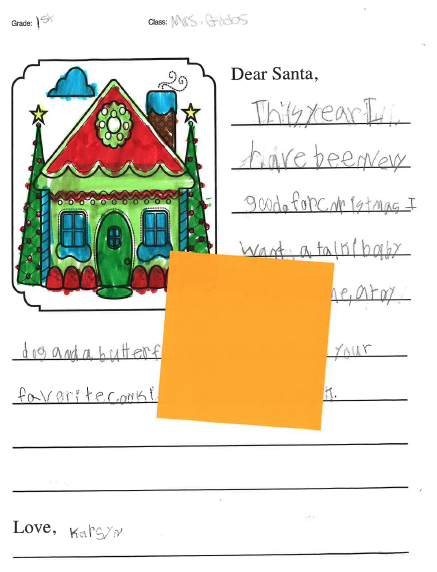 Grade: 1st Class: Mrs. Gibbs
Dear Santa,
This year I
have been very
good for christmas I
want a talki baby
a toy
dog and a butterf
your
favorite
Love, Karsyn